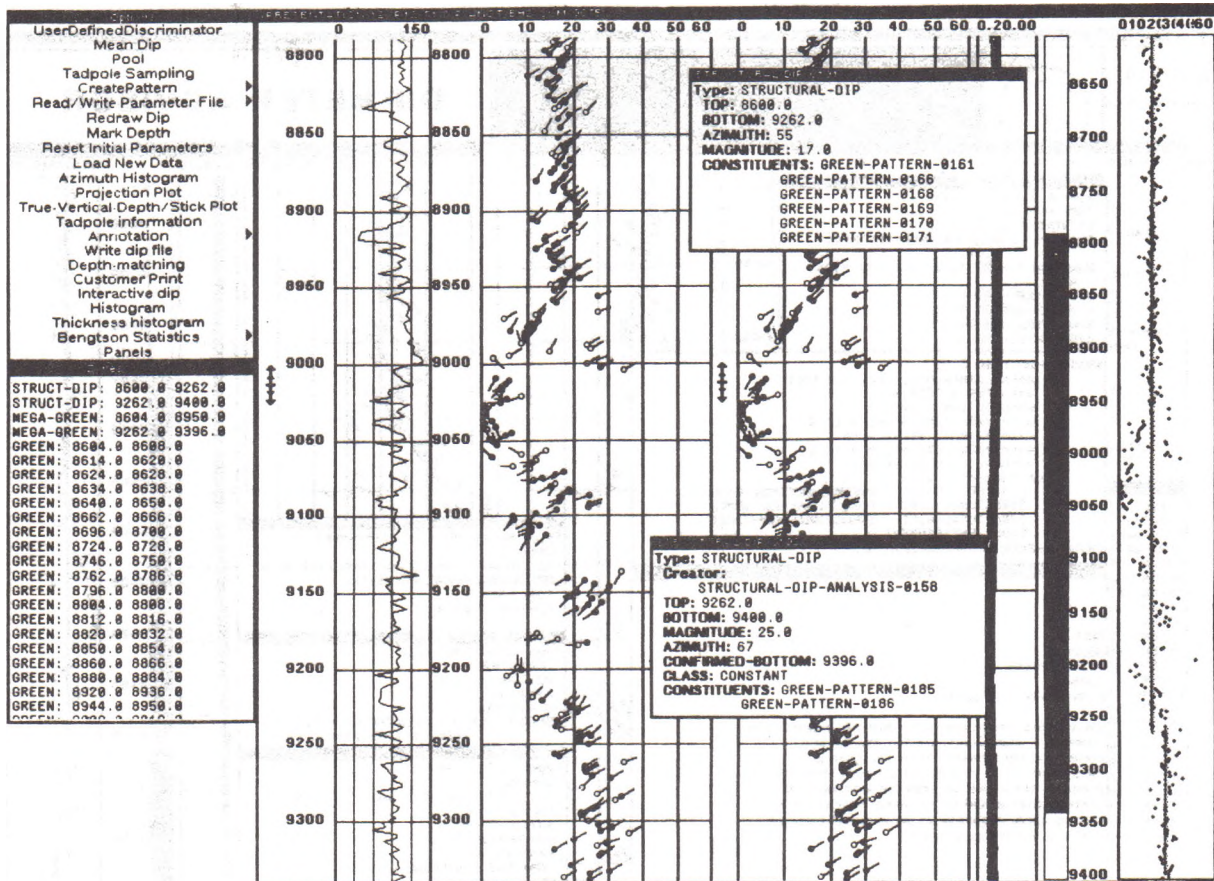 UserDefinedDiscriminator
Mean Dip
Pool
Tadpole Sampling
CreatePattern
Read/Write Parameter File
Redraw Dip
Mark Depth
Reset Initial Parameters
Load New Data
Azimuth Histogram
Projection Plot
True-Vertical Depth/Stick Plot
Tadpole information
Annotation
Write dip file
Depth-matching
Customer Print
Interactive dip
Histogram
Thickness histogram
Bengtson Statistics
Panels
STRUCT-DIP: 8600.0 9262.0
STRUCT-DIP: 9262.0 9400.0
MEGA-GREEN: 8604.0 8950.0
MEGA-GREEN: 9262.0 9396.0
GREEN: 8604.0 8608.0
GREEN: 8614.0 8620.0
GREEN: 8624.0 8628.0
GREEN: 8634.0 8638.0
GREEN: 8640.0 8650.0
GREEN: 8662.0 8666.0
GREEN: 8696.0 8700.0
GREEN: 8724.0 8728.0
GREEN: 8746.0 8750.0
GREEN: 8762.0 8786.0
GREEN: 8796.0 8800.0
GREEN: 8804.0 8808.0
GREEN: 8812.0 8816.0
GREEN: 8828.0 8832.0
GREEN: 8850.0 8854.0
GREEN: 8860.0 8866.0
GREEN: 8880.0 8884.0
GREEN: 8920.0 8936.0
GREEN: 8944.0 8950.0
0 150
8800
8850
8900
8950
9000
9050
9100
9150
9200
9250
9300
0 10 20 30 40 50 60
8800
8850
8900
8950
9000
9050
9100
9150
9200
9250
9300
0 10 20 30 40 50 60
0.20.00
Type: STRUCTURAL-DIP
TOP: 8600.0
BOTTOM: 9262.0
AZIMUTH: 55
MAGNITUDE: 17.0
CONSTITUENTS: GREEN-PATTERN-0161
GREEN-PATTERN-0166
GREEN-PATTERN-0168
GREEN-PATTERN-0169
GREEN-PATTERN-0170
GREEN-PATTERN-0171
Type: STRUCTURAL-DIP
Creator:
STRUCTURAL-DIP-ANALYSIS-0158
TOP: 9262.0
BOTTOM: 9400.0
MAGNITUDE: 25.0
AZIMUTH: 67
CONFIRMED-BOTTOM: 9396.0
CLASS: CONSTANT
CONSTITUENTS: GREEN-PATTERN-0185
GREEN-PATTERN-0186
8650
8700
8750
8800
8850
8900
8950
9000
9050
9100
9150
9200
9250
9300
9350
9400